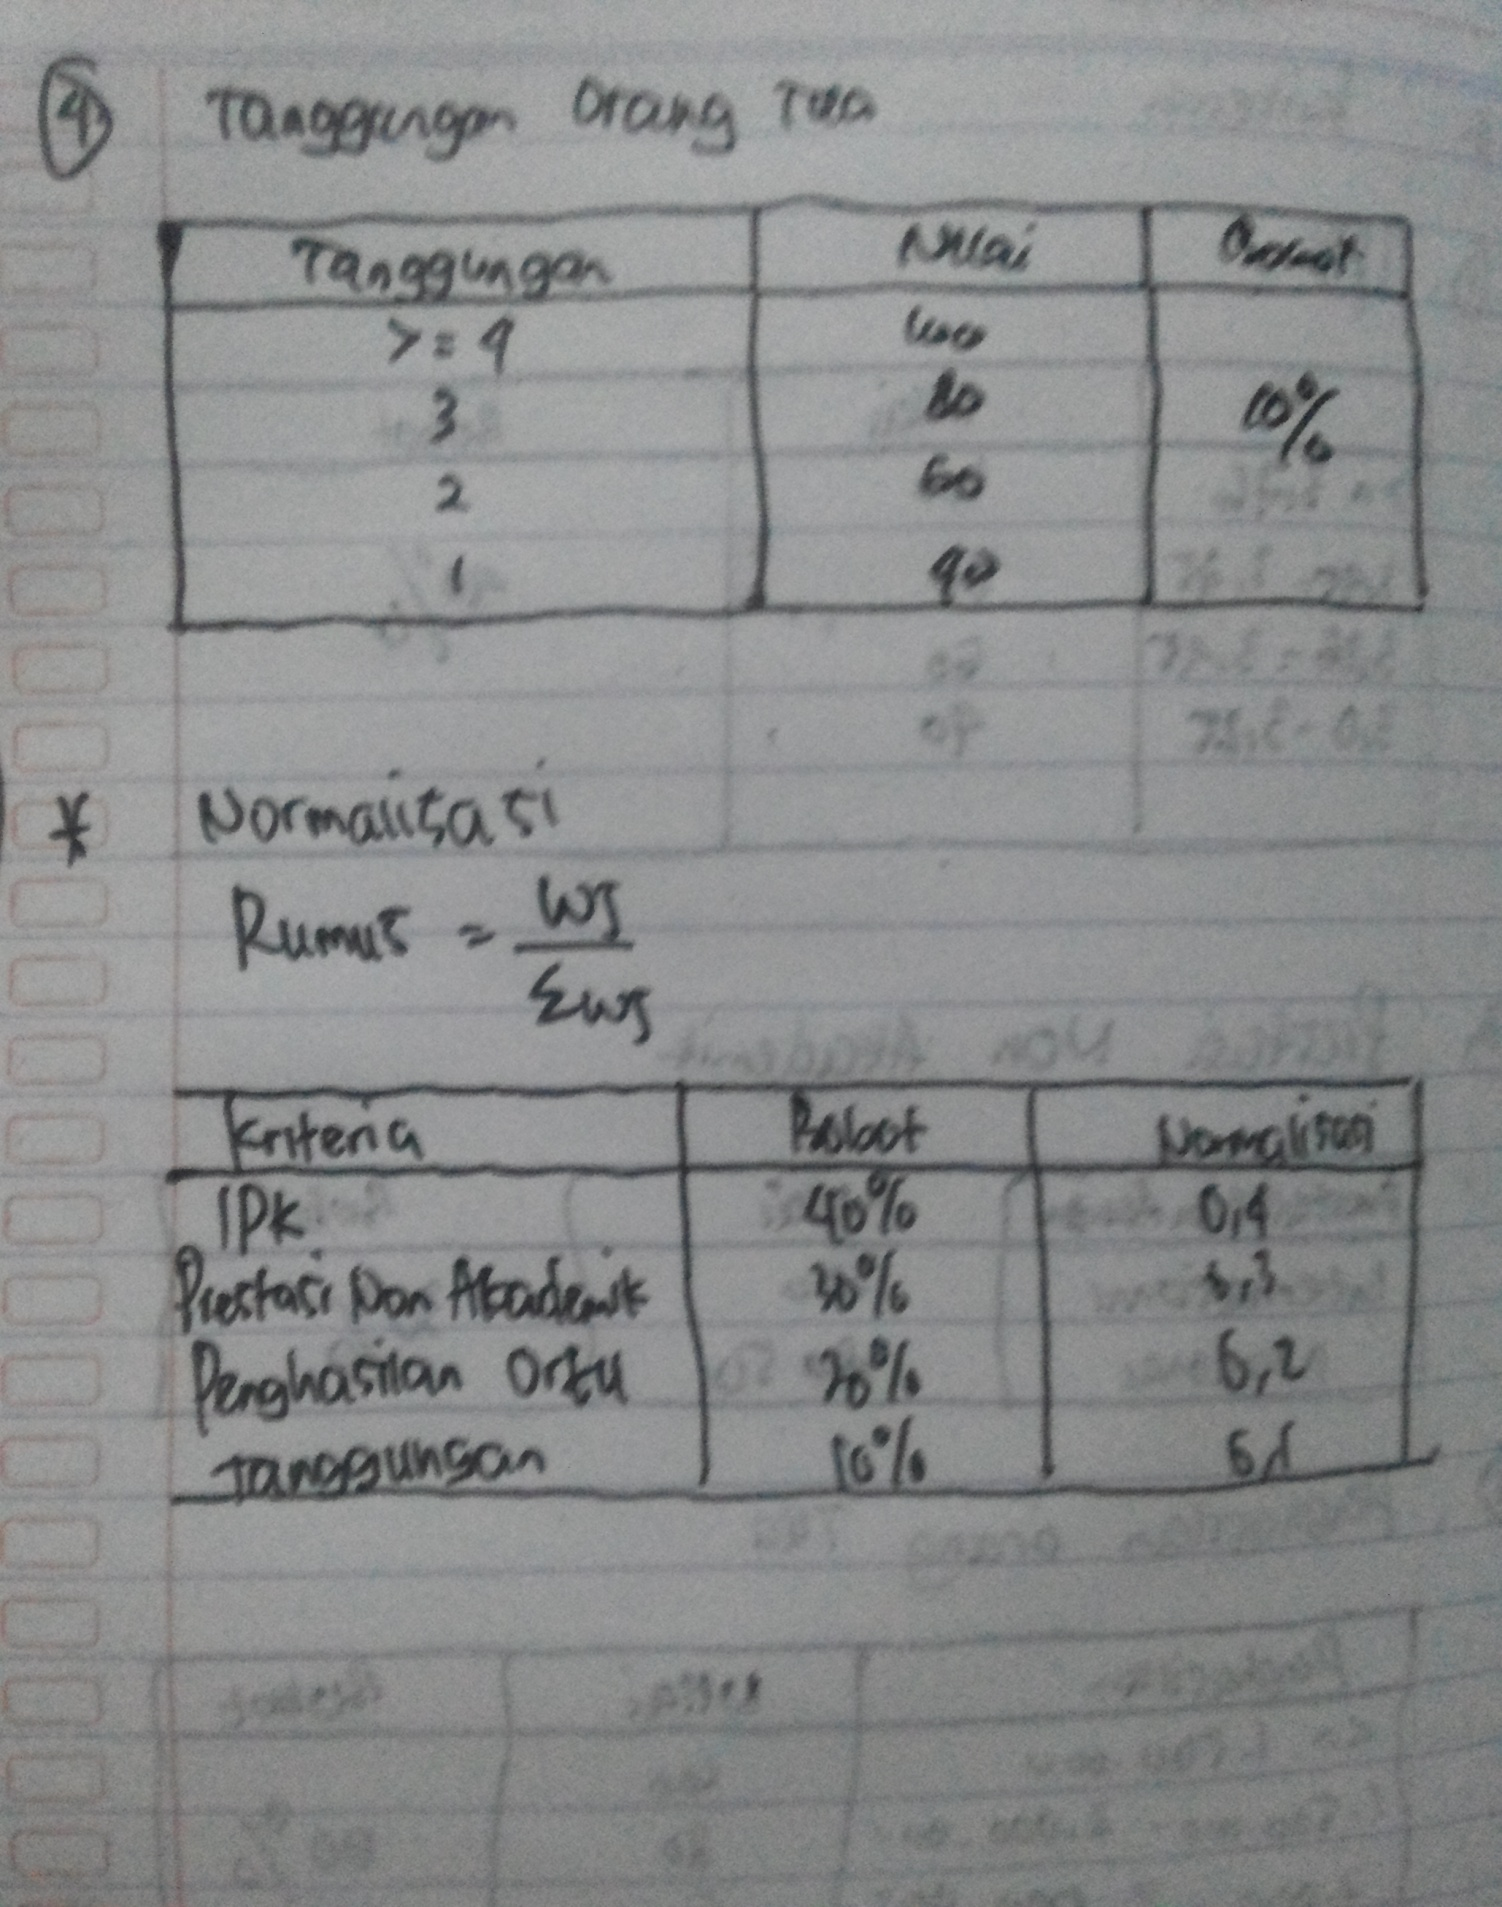 4 Tanggungan Orang Tua
Tanggungan Nilai Bobot
>= 4 100
3 80 10%
2 60
1 40
* Normalisasi
Rumus = Wj
Σwj
Kriteria Bobot Normalisasi
IPK 40% 0,4
Prestasi Non Akademik 30% 0,3
Penghasilan Ortu 20% 0,2
Tanggungan 10% 0,1